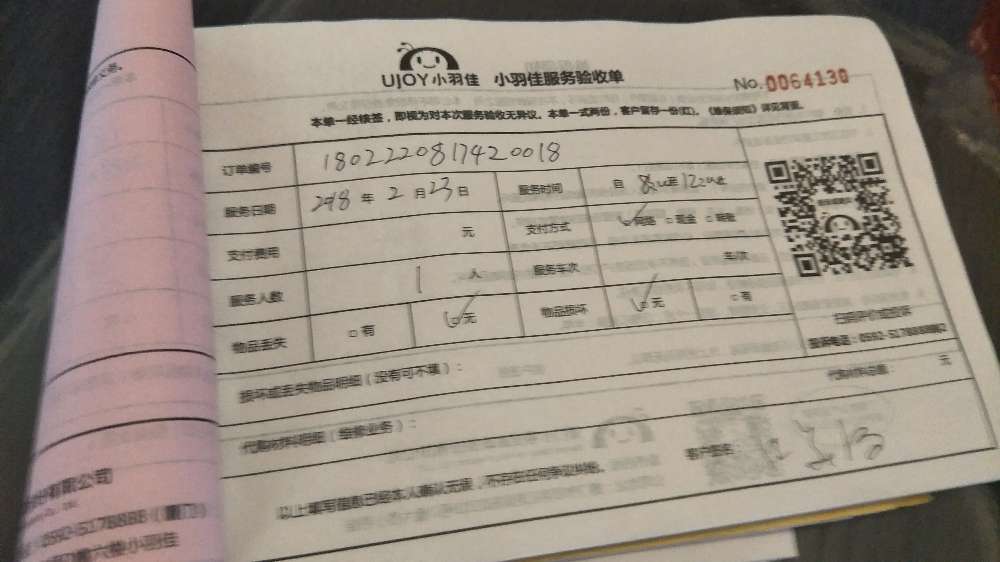 UJOY小羽佳 小羽佳服务验收单
No.0064130
本单一经核签，即视为对本次服务验收无异议。本单一式两份，客户留存一份(红)。《维保须知》详见背面。
订单编号 1802220817420018
服务日期 2018 年 2 月 23 日 服务时间 自 至
支付费用 元 支付方式 网络 □ 现金 □ 转账
服务人数 1 人 服务车次 车/次
物品丢失 □ 有 □ 无 物品损坏 □ 无 □ 有
扫码评价或投诉
损坏或丢失物品明细（没有可不填）：
代购材料总额： 元
代购材料明细（维修业务）：
以上填写信息已经本人确认无误，不存在任何争议纠纷。
客户签名：
有限公司
0592-5178888（厦门）
六楼小羽佳